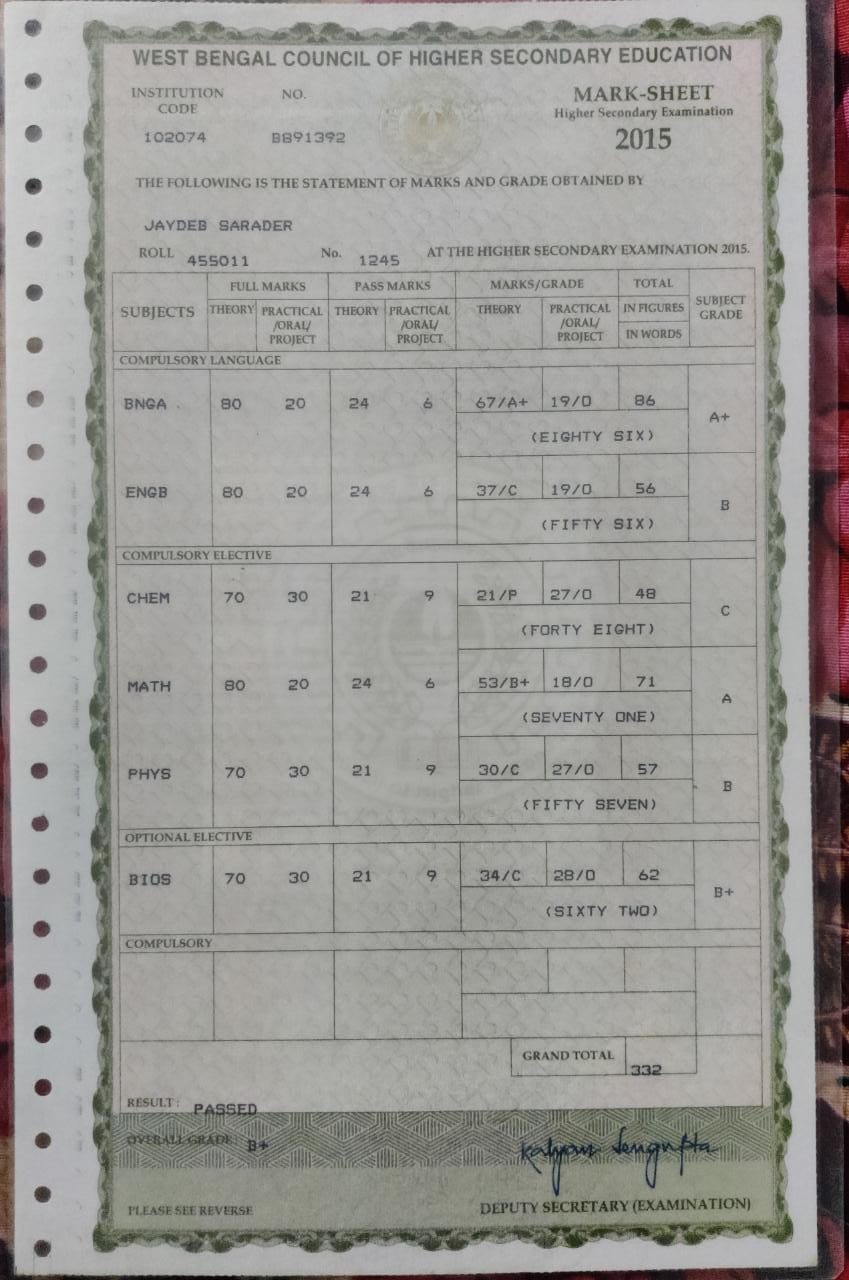 WEST BENGAL COUNCIL OF HIGHER SECONDARY EDUCATION
INSTITUTION CODE NO. MARK-SHEET
Higher Secondary Examination
102074 B891392 2015
THE FOLLOWING IS THE STATEMENT OF MARKS AND GRADE OBTAINED BY
JAYDEB SARADER
ROLL 455011 No. 1245 AT THE HIGHER SECONDARY EXAMINATION 2015.
SUBJECTS FULL MARKS PASS MARKS MARKS/GRADE TOTAL SUBJECT GRADE
THEORY PRACTICAL /ORAL/ PROJECT THEORY PRACTICAL /ORAL/ PROJECT THEORY PRACTICAL /ORAL/ PROJECT IN FIGURES
IN WORDS
COMPULSORY LANGUAGE
BNGA 80 20 24 6 67/A+ 19/O 86 A+
(EIGHTY SIX)
ENGB 80 20 24 6 37/C 19/O 56 B
(FIFTY SIX)
COMPULSORY ELECTIVE
CHEM 70 30 21 9 21/P 27/O 48 C
(FORTY EIGHT)
MATH 80 20 24 6 53/B+ 18/O 71 A
(SEVENTY ONE)
PHYS 70 30 21 9 30/C 27/O 57 B
(FIFTY SEVEN)
OPTIONAL ELECTIVE
BIOS 70 30 21 9 34/C 28/O 62 B+
(SIXTY TWO)
COMPULSORY
GRAND TOTAL 332
RESULT: PASSED
OVERALL GRADE: B+
Kalyan Sengupta
PLEASE SEE REVERSE DEPUTY SECRETARY (EXAMINATION)